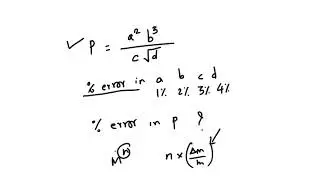 ✓ P = a² b³ / c √d
% error in a b c d
1% 2% 3% 4%
% error in P ?
M^n n × (Δm/m)